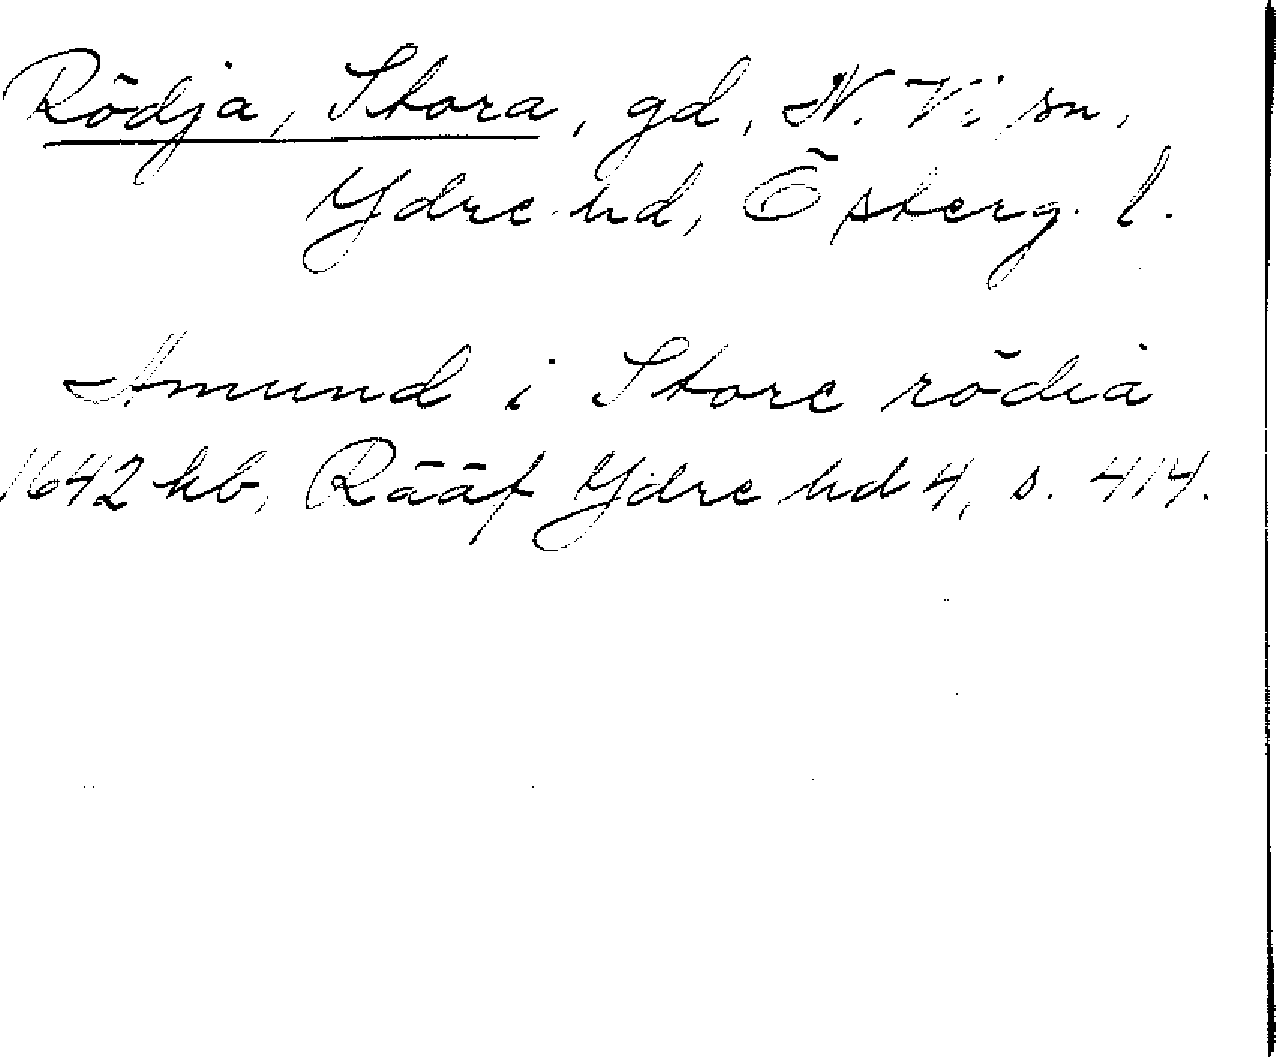 Rödja, Stora, gd, N. Vi sn,
Ydre hd, Östergl.
Amund i Store rödia
1642 kb, Rääf Ydre hd 4, s. 414.